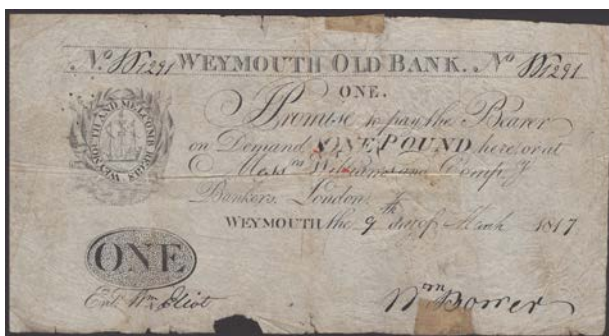 No. W1291 WEYMOUTH OLD BANK. No W1291
ONE.
I Promise to pay the Bearer
on Demand ONE POUND, here, or at
Messrs Williams and Compy
Bankers, London.
WEYMOUTH the 9th day of March 1817
WEYMOUTH AND MELCOMB REGIS
ONE
Entd. Wm Eliot
Wm Bower